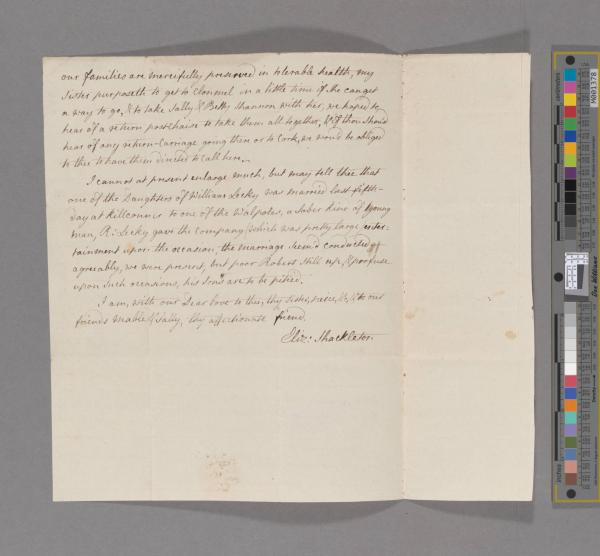 our families are mercifully preserved in tolerable health, my
Sister purposeth to get to Clonmel in a little time if she can get
a way to go, & to take Sally & Betty Shannon with her, we hoped to
hear of a return postchaise to take them all together, & if thou should
hear of any return-carriage going there or to Cork, we wou'd be obliged
to thee to have them directed to call here.
I cannot at present enlarge much, but may tell thee that
one of the Daughters of William Lecky was married last fifth-
day at Kilconner to one of the Walpoles, a sober kind of young
man, R: Lecky gave the company (which was pretty large) enter-
tainment upon the occasion, the marriage seem'd conducted
agreeably, we were present, but poor Robert still up, & profuse
upon such occasions, his sons are to be pitied.
I am, with our Dear love to thee, thy sister, niece, &c, & to our
friends Mable & Sally, thy affectionate friend.
Eliz: Shackleton.
M001378
inches
centimetres